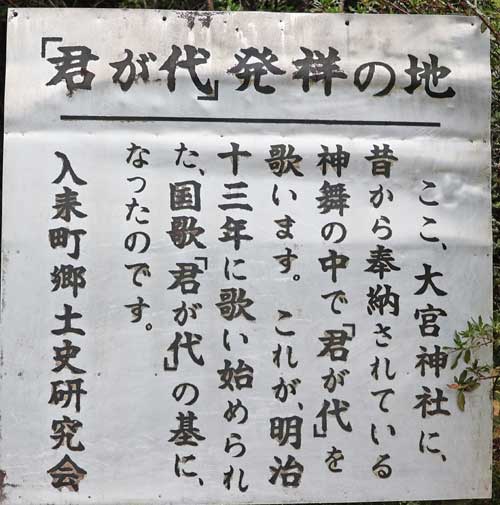 「君が代」発祥の地
ここ、大宮神社に、
昔から奉納されている
神舞の中で『君が代』を
歌います。これが、明治
十三年に歌い始められ
た、国歌『君が代』の基に、
なったのです。
入来町郷土史研究会